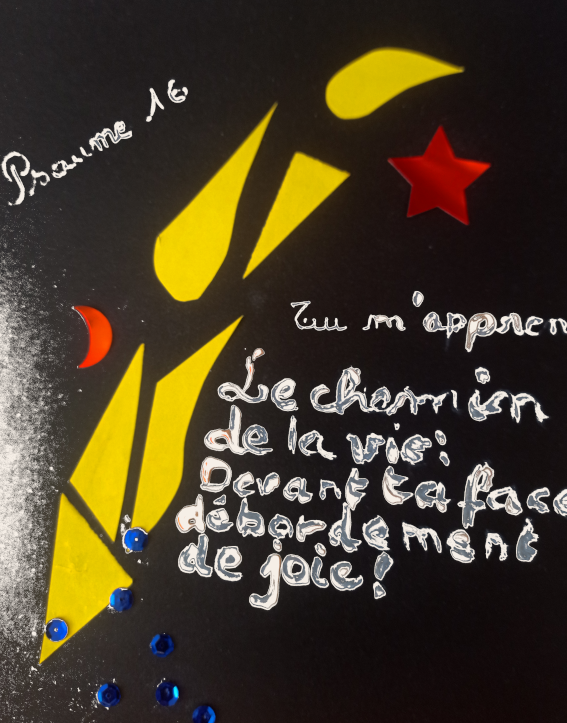 Psaume 16
Tu m'appren
Le chemin
de la vie:
Devant ta face
débordement
de joie!